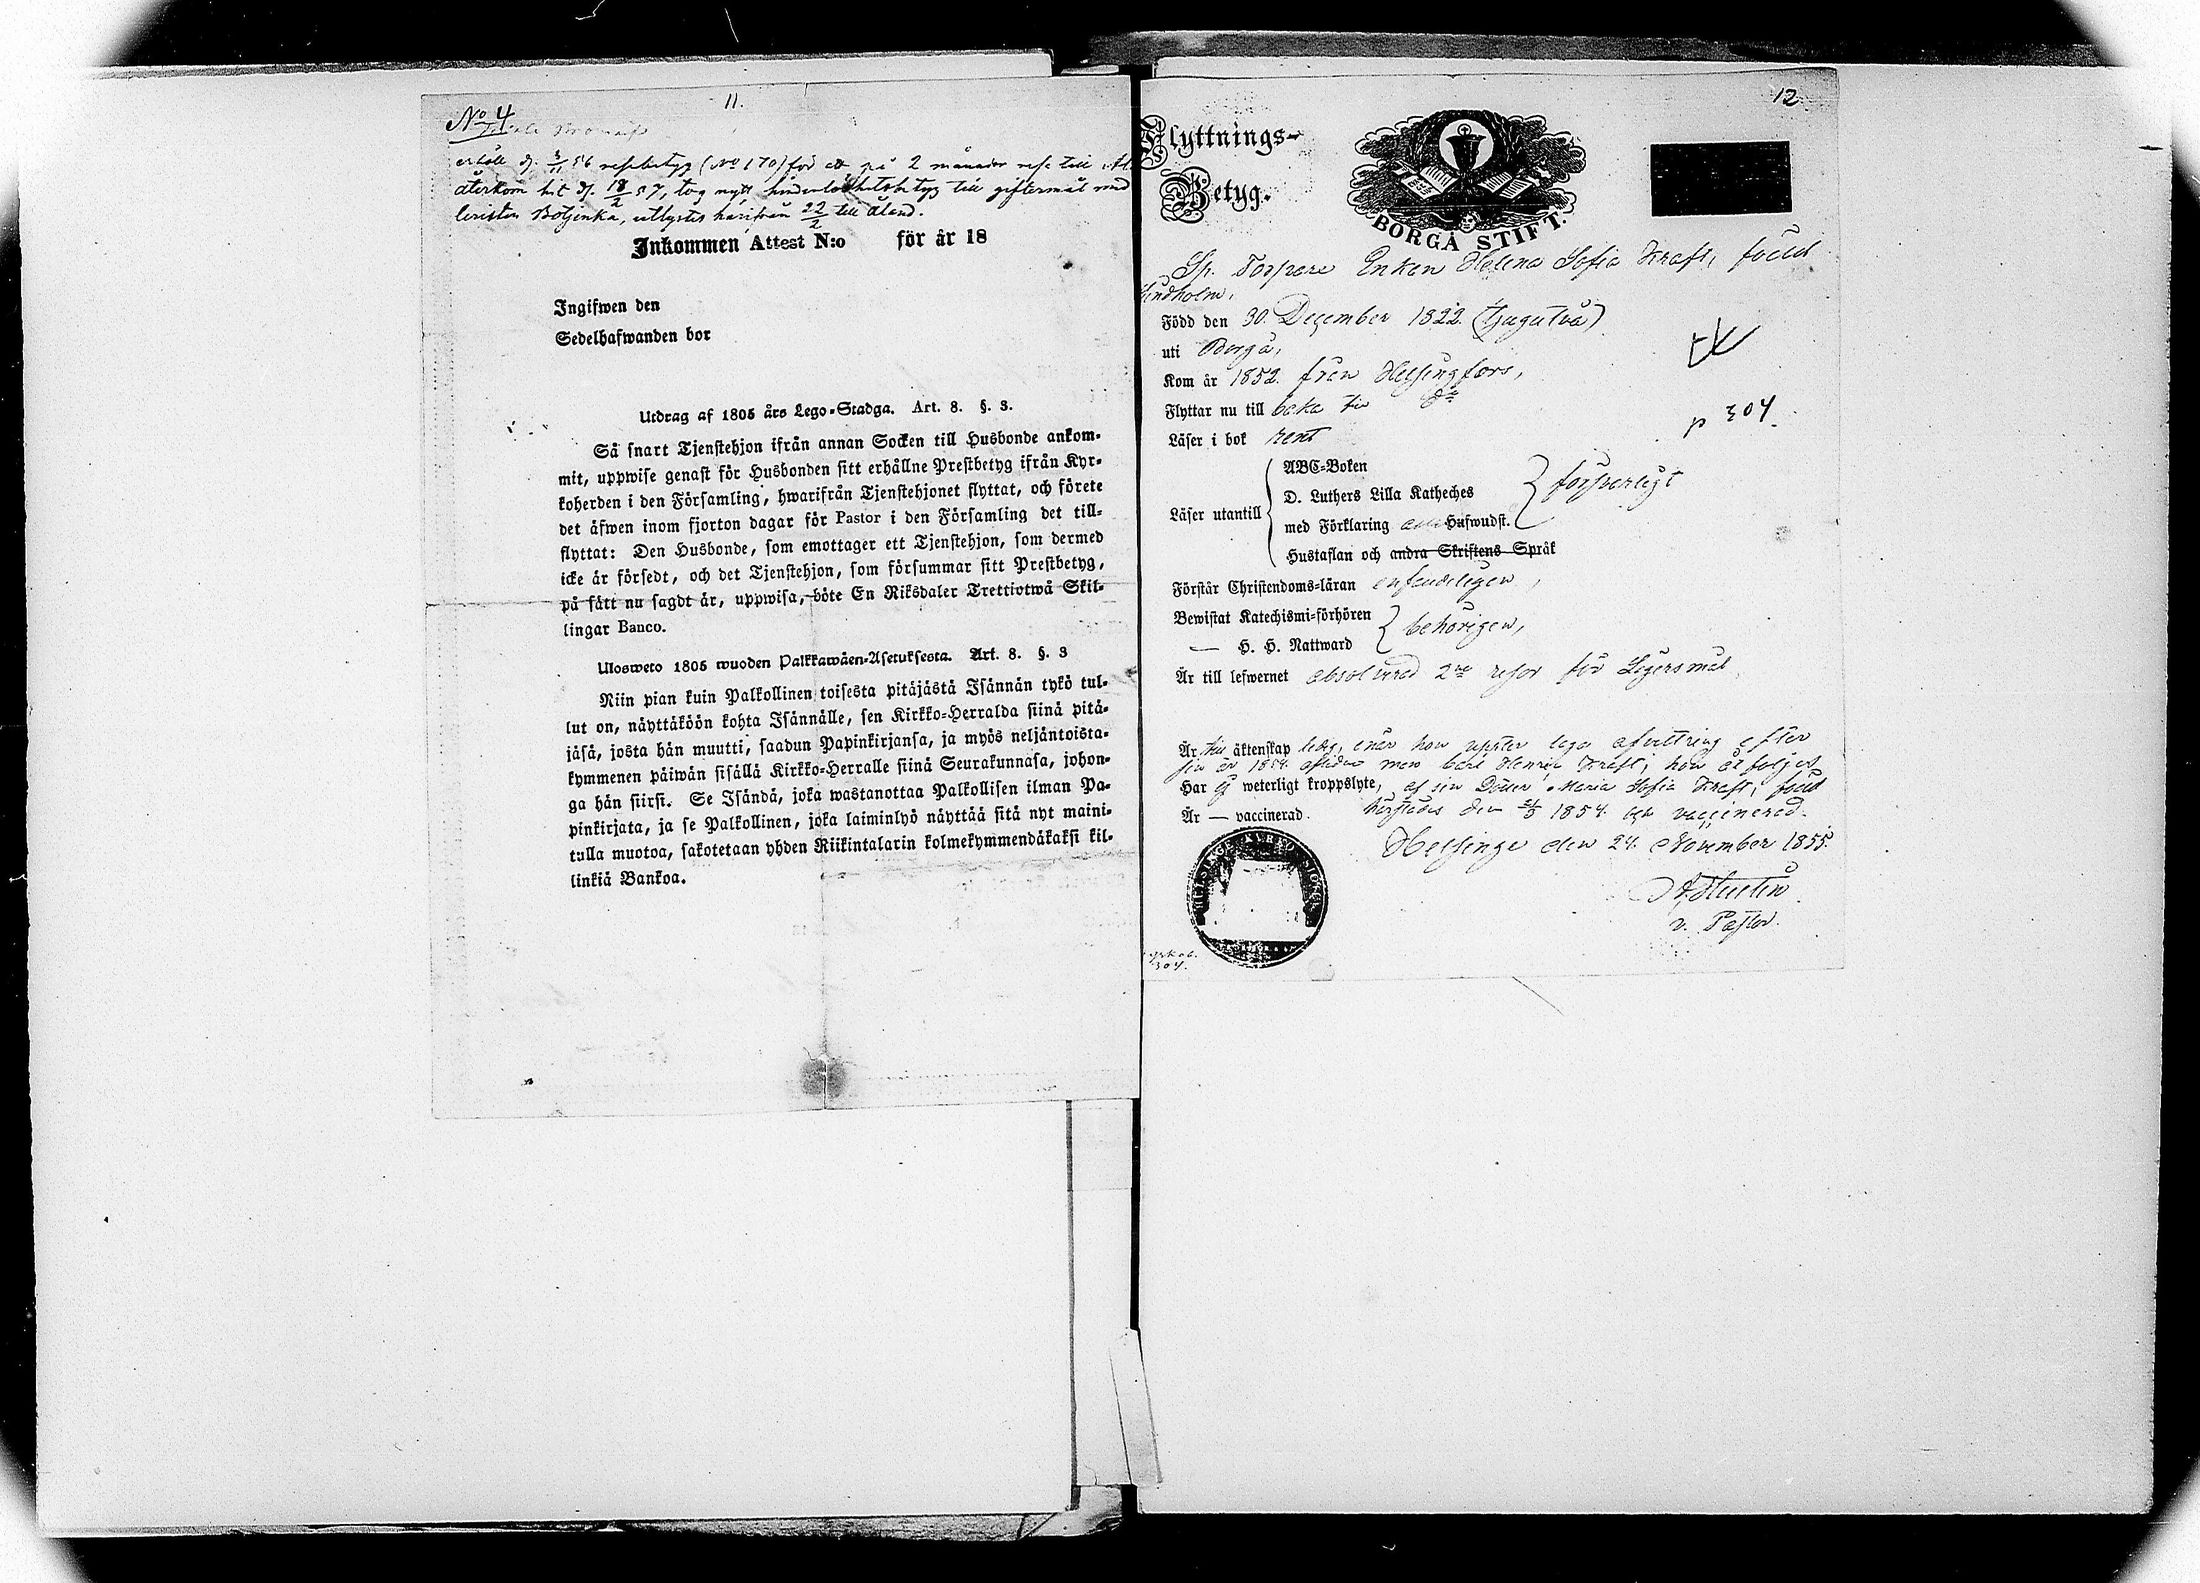 11.
No 4
erhöll d. 3/11 56 resebetyg (No 170) för ett på 2 månader rese till
återkom hit d. 18/2 57, tog nytt hinderlöshetsbetyg till giftermål med
Botjenka, utlystes härifrån 22/2 till Åland.
Inkommen Attest N:o för år 18
Ingifwen den
Sedelhafwanden bor
Utdrag af 1805 års Lego-Stadga. Art. 8. §. 3.
Så snart Tjenstehjon ifrån annan Socken till Husbonde ankom-
mit, uppwise genast för Husbonden sitt erhållne Prestbetyg ifrån Kyr-
koherden i den Församling, hwarifrån Tjenstehjonet flyttat, och förete
det äfwen inom fjorton dagar för Pastor i den Församling det till-
flyttat: Den Husbonde, som emottager ett Tjenstehjon, som dermed
icke är försedt, och det Tjenstehjon, som försummar sitt Prestbetyg,
på sätt nu sagdt är, uppwisa, böte En Riksdaler Trettiotwå Skil-
lingar Banco.
Ulosweto 1805 wuoden Palkkawäen-Asetuksesta. Art. 8. §. 3
Niin pian kuin Palkollinen toisesta pitäjästä Isännän tykö tul-
lut on, näyttäköön kohta Isännälle, sen Kirkko-Herralda siinä pitä-
jäsä, josta hän muutti, saadun Papinkirjansa, ja myös neljäntoista-
kymmenen päiwän sisällä Kirkko-Herralle siinä Seurakunnasa, johon-
ga hän siirsi. Se Isändä, joka wastanottaa Palkollisen ilman Pa-
pinkirjata, ja se Palkollinen, joka laiminlyö näyttää sitä nyt maini-
tulla muotoa, sakotetaan yhden Riikintalarin kolmekymmendäkaksi kil-
linkiä Bankoa.
12
Flyttnings-
Betyg.
BORGÅ STIFT.
Sp. Torpare Enkan Helena Sofia Kraft, född
Lindholm,
Född den 30. December 1822. (tjugutvå)
uti Borgå,
Kom år 1852. från Helsingfors,
Flyttar nu till baka till do
p 304.
Läser i bok rent
Läser utantill
ABC-Boken
D. Luthers Lilla Katheches
med Förklaring Hufwudst.
Hustaflan och andra Skriftens Språk
försvarligt
Förstår Christendoms-läran enfaldeligen,
Bewistat Katechismi-förhören
— H. H. Nattward
behörigen,
Är till lefwernet absolverad 2ne resor för Lägersmål,
Är till äktenskap ledig, enär hon uppter laga afvittring efter
sin år 1854. aflidne man Carl Henrik Kraft; hon åtföljes
Har ej weterligt kroppslyte, af sin Dotter Maria Sofia Kraft, född
Är — vaccinerad. härstädes den 1854. och vaccinerad.
Helsinge den 24. November 1855.
v. Pastor.
304.